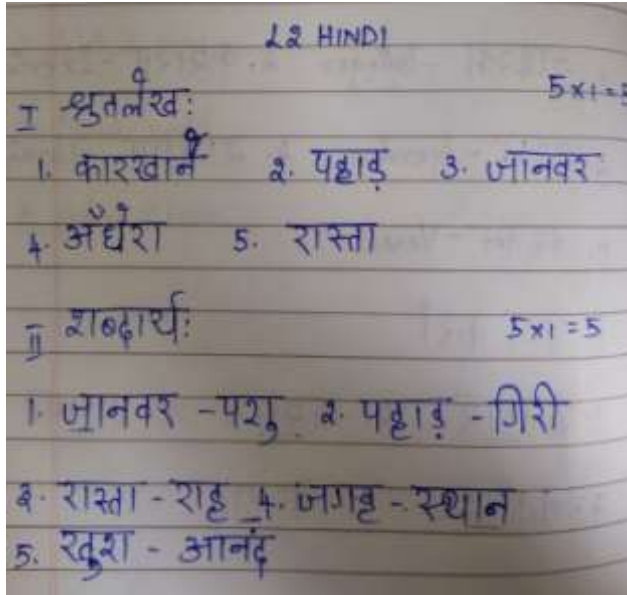 L2 HINDI
I श्रुतलेख: 5x1=5
1. कारखाने 2. पहाड़ 3. जानवर
4. अँधेरा 5. रास्ता
II शब्दार्थ: 5x1=5
1. जानवर - पशु 2. पहाड़ - गिरी
3. रास्ता - राह 4. जगह - स्थान
5. खुश - आनंद